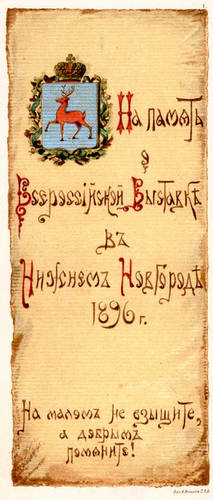 На память
о
Всероссійской Выставкѣ
въ
Нижнемъ Новгородѣ
1896 г.
На маломъ не взыщите,
а добрымъ
помяните!